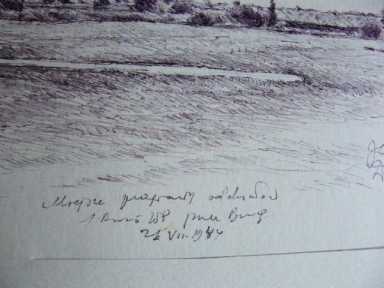 Miejsce przeprawy oddziałów
1 Armii WP przez Bug
22 VII 1944